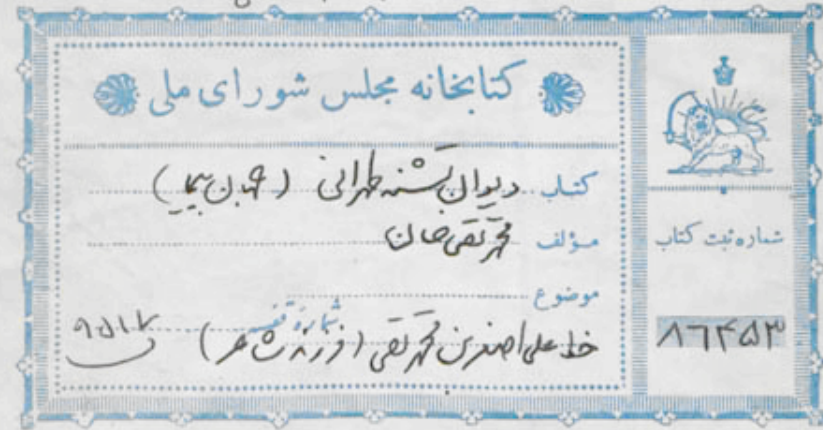 کتابخانه مجلس شورای ملی
کتاب دیوان تشنه طهرانی (جهان پیما)
مؤلف محمد تقی خان
موضوع
شماره قفسه
خط علی اصغر بن محمد تقی (فرزند شاعر)
۹۵۱۷
شماره ثبت کتاب
۸۶۴۵۳